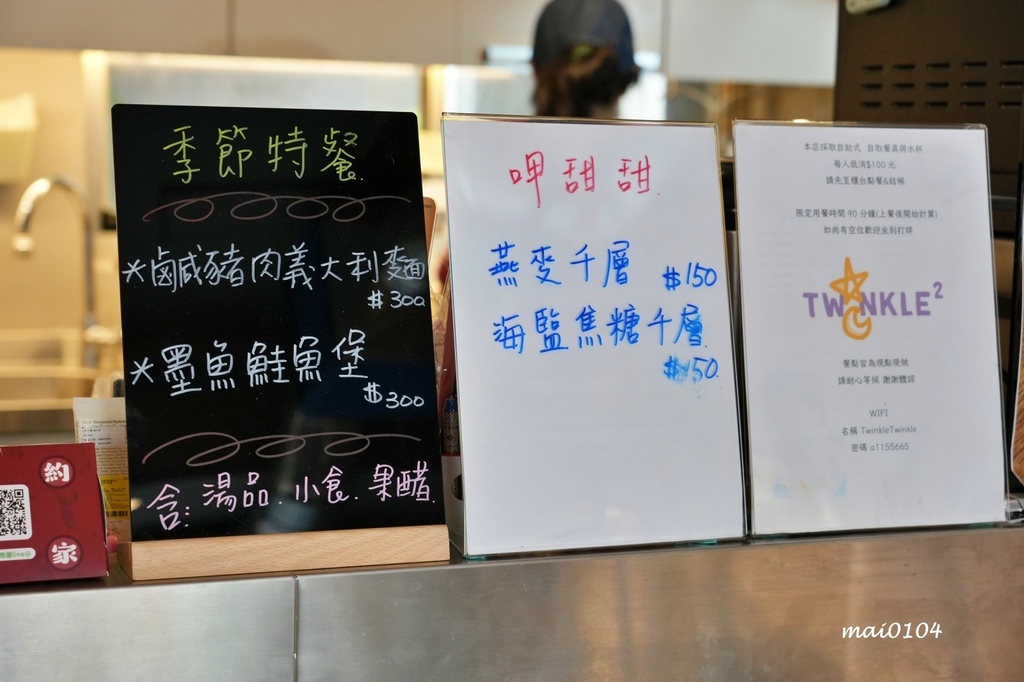 季節特餐
*鹹豬肉義大利麵
$300
*墨魚鮭魚堡
$300
含:湯品.小食.果醋
呷甜甜
燕麥千層 $150
海鹽焦糖千層
$150
本店採取自助式 自取餐具與水杯
每人低消$100元
請先至櫃台點餐&結帳
限定用餐時間 90 分鐘(上餐後開始計算)
如尚有空位歡迎坐到打烊
TWINKLE²
餐點皆為現點現做
請耐心等候 謝謝體諒
WIFI
名稱 TwinkleTwinkle
密碼 a1155665
約
家
mai0104